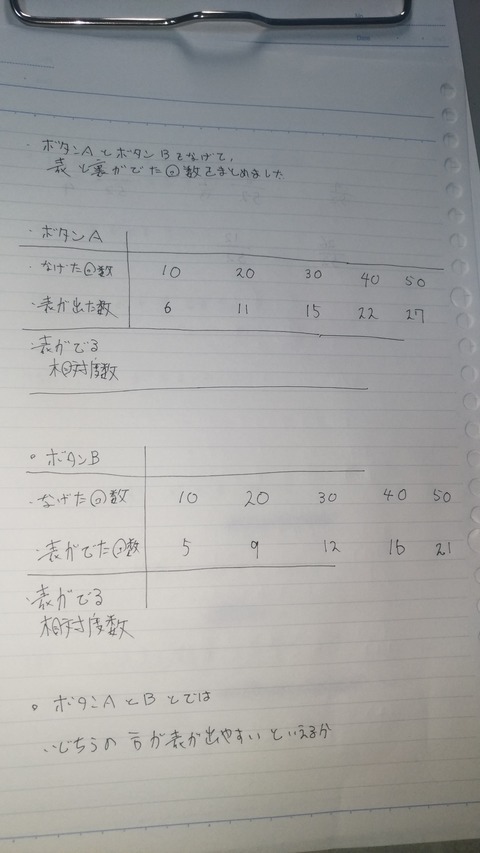 No.
Date
・ボタンAとボタンBをなげて、
表と裏がでた回数をまとめました
・ボタンA
・なげた回数 10 20 30 40 50
・表が出た数 6 11 15 22 27
・表がでる
相対度数
・ボタンB
・なげた回数 10 20 30 40 50
・表がでた回数 5 9 12 16 21
・表がでる
相対度数
・ボタンAとBとでは
・どちらの方が表が出やすいといえるか